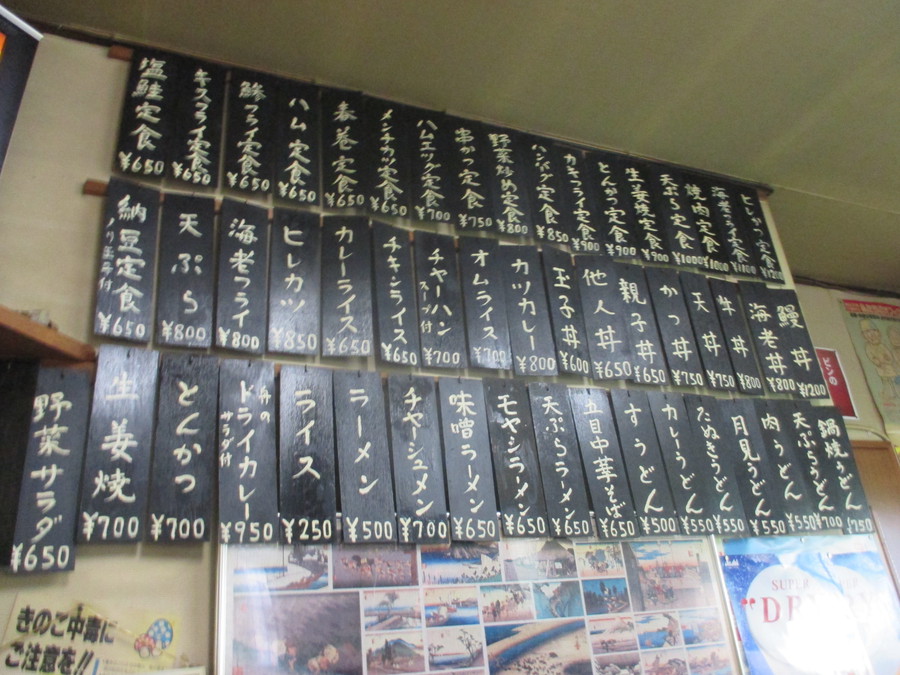 塩鮭定食 ¥650
キスフライ定食 ¥650
鯵フライ定食 ¥650
ハム定食 ¥650
春巻定食 ¥650
メンチカツ定食 ¥650
ハムエッグ定食 ¥700
串かつ定食 ¥750
野菜炒め定食 ¥800
ハンバーグ定食 ¥850
カキフライ定食 ¥900
とんかつ定食 ¥900
生姜焼定食 ¥900
天ぷら定食 ¥1000
焼肉定食 ¥1000
海老フライ定食 ¥1100
ヒレかつ定食 ¥1200
納豆定食 ノリ玉子付 ¥650
天ぷら ¥800
海老フライ ¥800
ヒレカツ ¥850
カレーライス ¥650
チキンライス ¥650
チャーハン スープ付 ¥700
オムライス ¥700
カツカレー ¥800
玉子丼 ¥600
他人丼 ¥650
親子丼 ¥650
かつ丼 ¥750
天丼 ¥750
牛丼 ¥800
海老丼 ¥800
鰻丼 ¥1200
野菜サラダ ¥650
生姜焼 ¥700
とんかつ ¥700
ドライカレー サラダ付 ¥950
ライス ¥250
ラーメン ¥500
チャーシュメン ¥700
味噌ラーメン ¥650
モヤシラーメン ¥650
天ぷらラーメン ¥650
五目中華そば ¥650
すうどん ¥500
カレーうどん ¥550
たぬきうどん ¥550
月見うどん ¥550
肉うどん ¥550
天ぷらうどん ¥700
鍋焼うどん ¥750
きのこ中毒に
ご注意を!!
Asahi
SUPER
"DRY